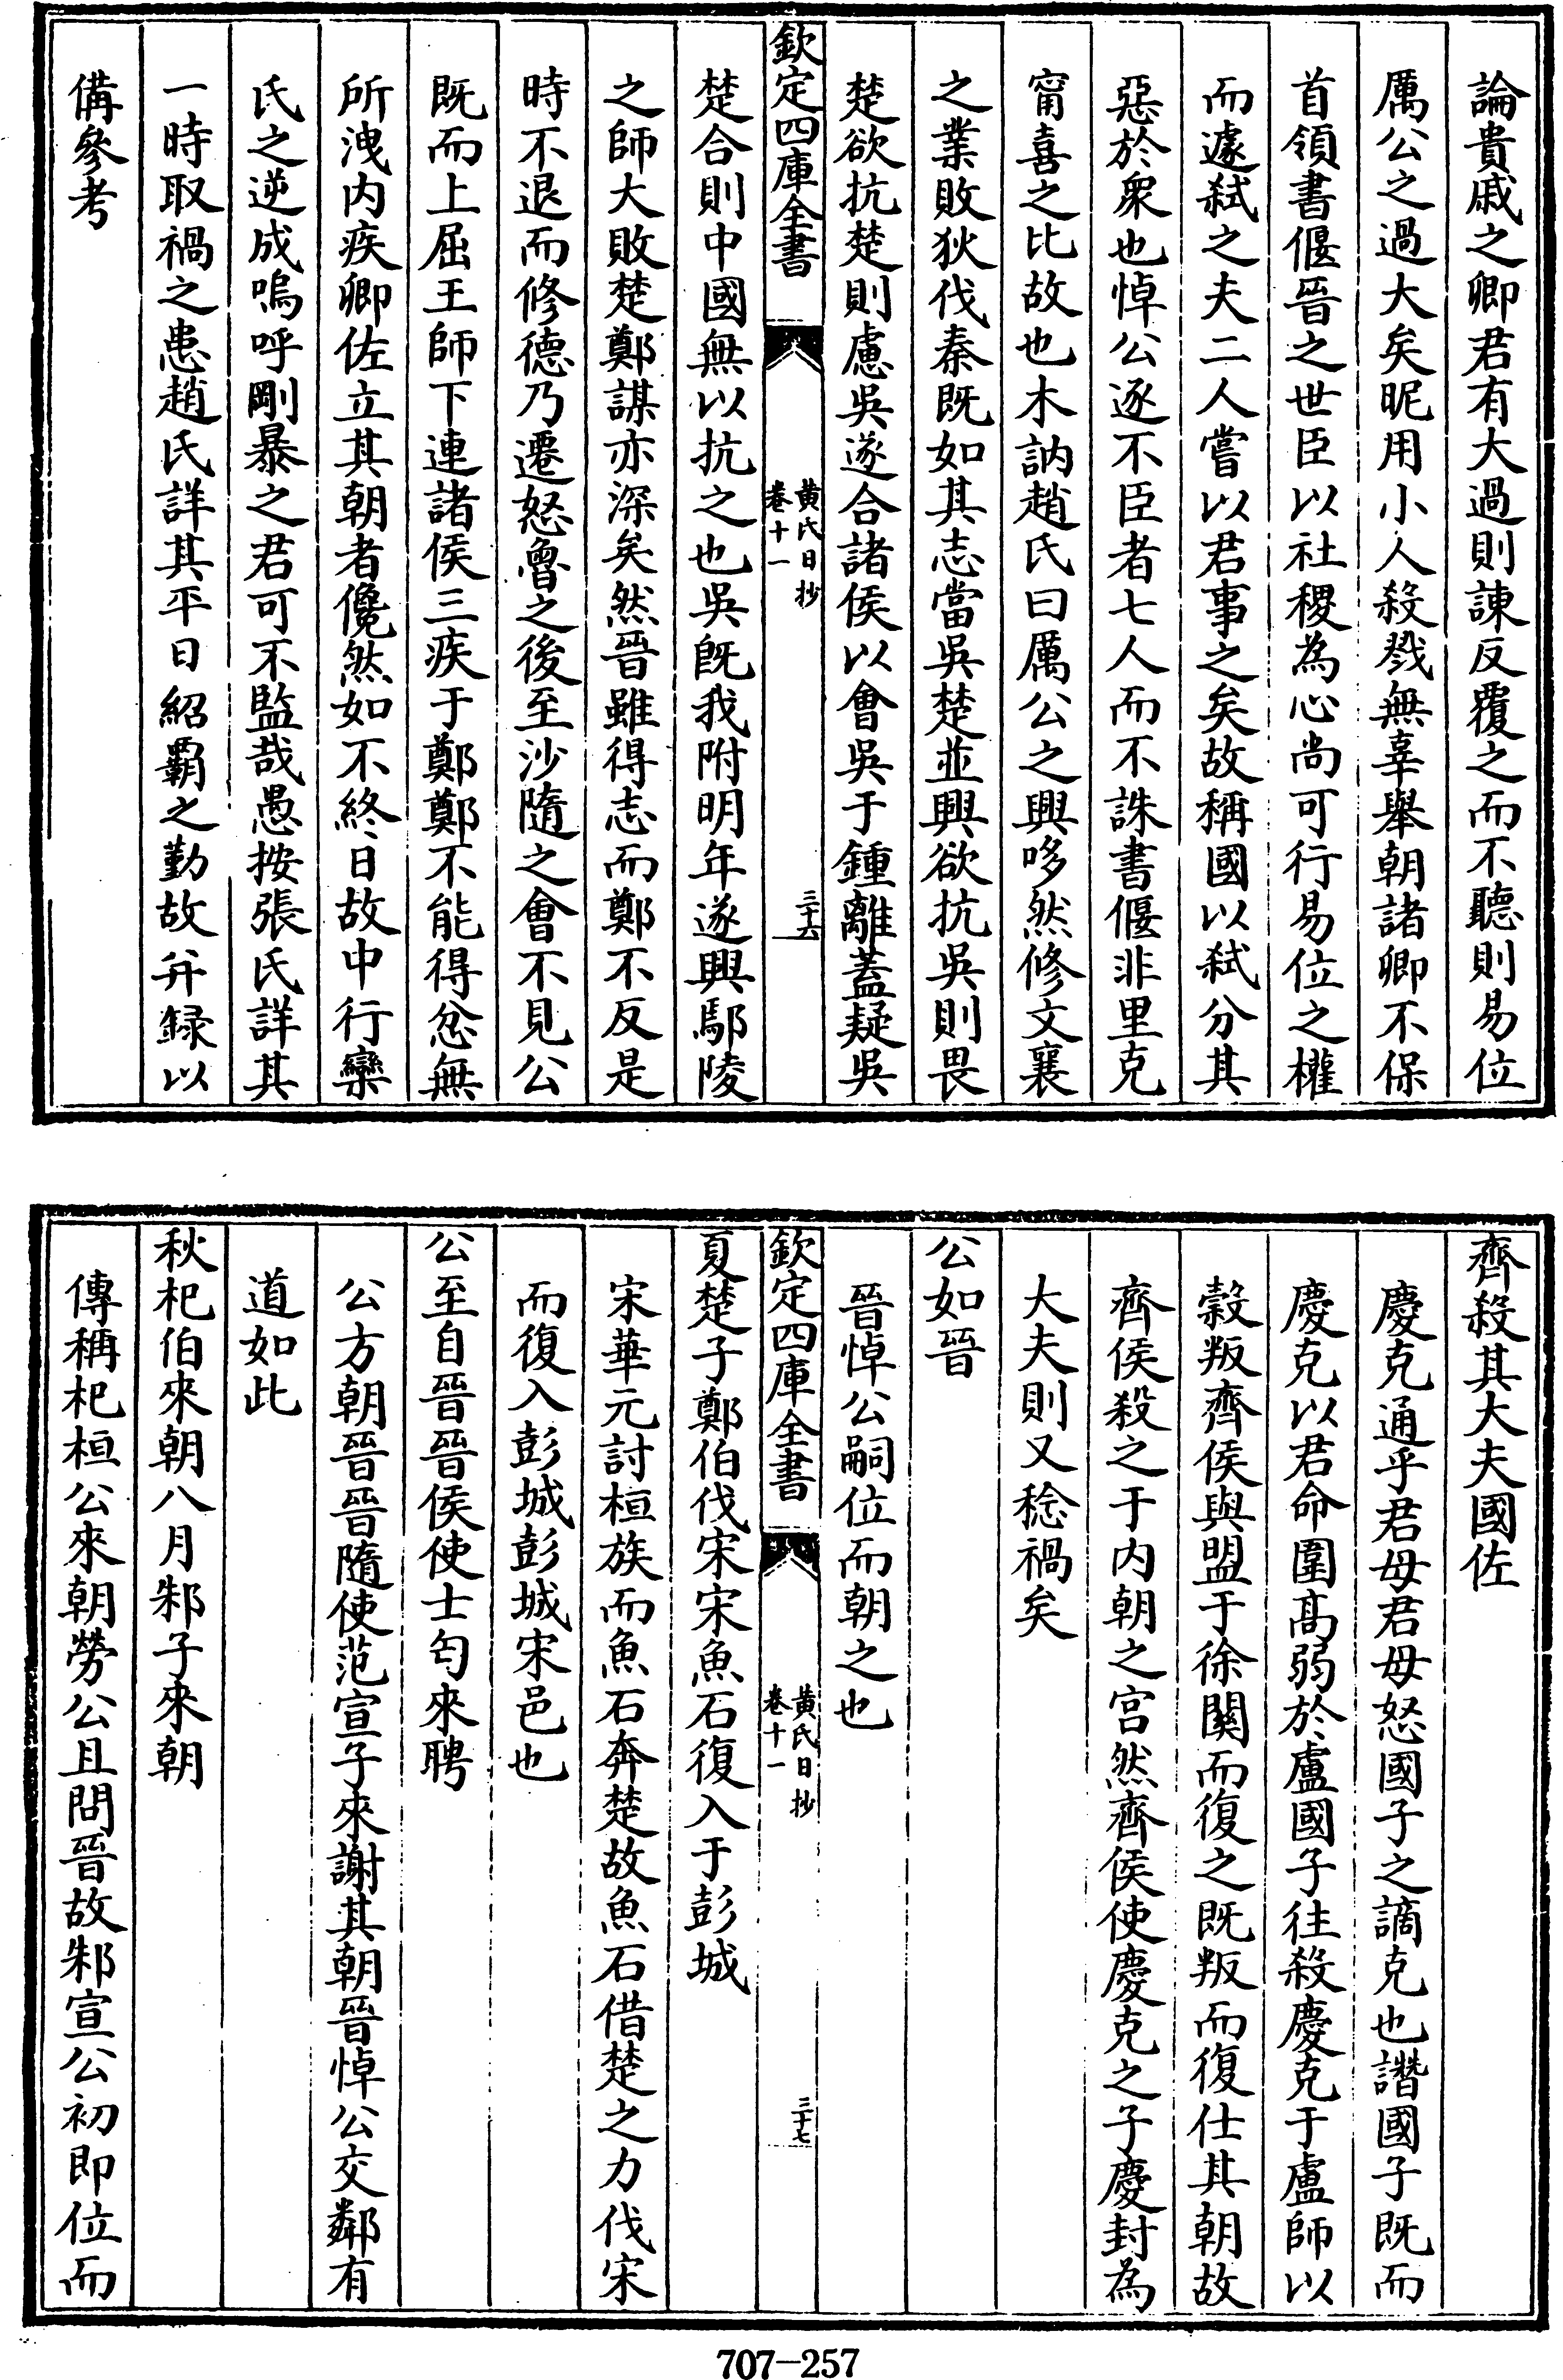 論貴戚之卿君有大過則諫反覆之而不聽則易位
厲公之過大矣昵用小人殺戮無辜舉朝諸卿不保
首領書偃晉之世臣以社稷為心尚可行易位之權
而遽弑之夫二人嘗以君事之矣故稱國以弑分其
惡於衆也悼公逐不臣者七人而不誅書偃非里克
甯喜之比故也木訥趙氏曰厲公之興哆然修文襄
之業敗狄伐秦既如其志當吳楚並興欲抗吳則畏
楚欲抗楚則慮吳遂合諸侯以會吳于鍾離蓋疑吳
欽定四庫全書
黄氏日抄
卷十一
三十六
楚合則中國無以抗之也吳既我附明年遂興鄢陵
之師大敗楚鄭謀亦深矣然晉雖得志而鄭不反是
時不退而修德乃遷怒魯之後至沙隨之會不見公
既而上屈王師下連諸侯三疾于鄭鄭不能得忿無
所洩内疾卿佐立其朝者儳然如不終日故中行欒
氏之逆成嗚呼剛暴之君可不監哉愚按張氏詳其
一時取禍之患趙氏詳其平日紹霸之勤故并録以
備參考
齊殺其大夫國佐
慶克通乎君母君母怒國子之謫克也譖國子既而
慶克以君命圍髙弱於盧國子往殺慶克于盧師以
穀叛齊侯與盟于徐關而復之既叛而復仕其朝故
齊侯殺之于内朝之宫然齊侯使慶克之子慶封為
大夫則又稔禍矣
公如晉
晉悼公嗣位而朝之也
欽定四庫全書
黄氏日抄
卷十一
三十七
夏楚子鄭伯伐宋宋魚石復入于彭城
宋華元討桓族而魚石奔楚故魚石借楚之力伐宋
而復入彭城彭城宋邑也
公至自晉晉侯使士匄來聘
公方朝晉晉隨使范宣子來謝其朝晉悼公交鄰有
道如此
秋杞伯來朝八月邾子來朝
傳稱杞桓公來朝勞公且問晉故邾宣公初即位而
707-257